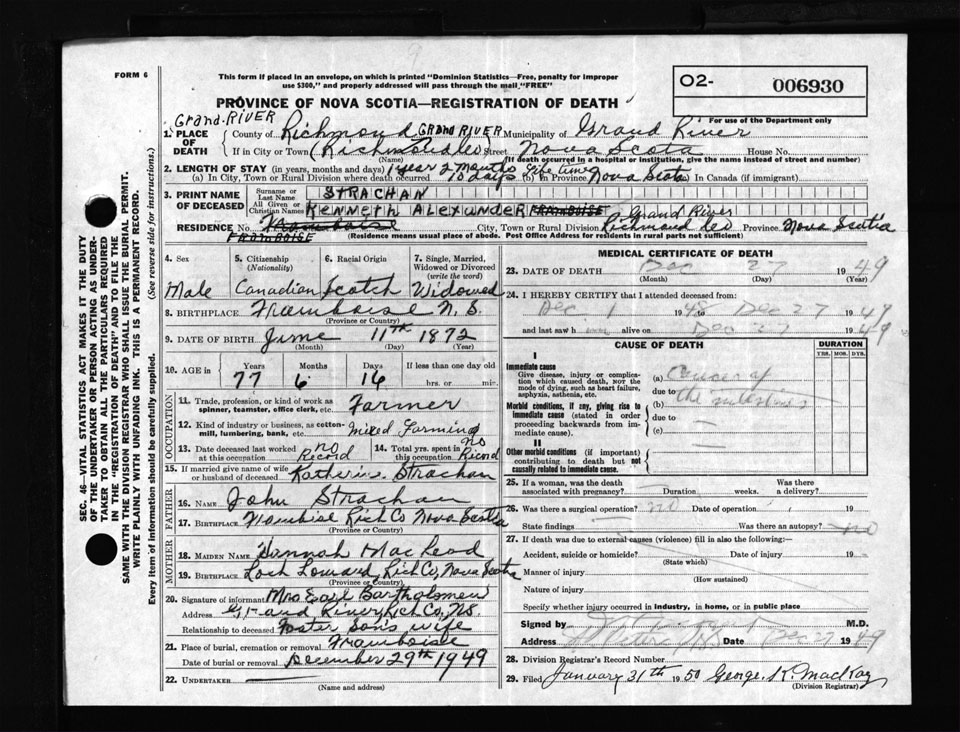 9
FORM 6
This form if placed in an envelope, on which is printed "Dominion Statistics—Free, penalty for improper
use $300," and properly addressed will pass through the mail "FREE"
O2- 006930
For use of the Department only
PROVINCE OF NOVA SCOTIA—REGISTRATION OF DEATH
Grand RIVER
1. PLACE OF DEATH
County of Richmond GRAND RIVER Municipality of Grand River
If in City or Town (Richmond Co) Street Nova Scota House No.
(Name) (If death occurred in a hospital or institution, give the name instead of street and number)
2. LENGTH OF STAY (in years, months and days) 1 year 2 Months life time
(a) In City, Town or Rural Division where death occurred 10 days (b) in Province Nova Scota (c) In Canada (if immigrant)
3. PRINT NAME OF DECEASED
Surname or Last Name STRACHAN
All Given or Christian Names KENNETH ALEXANDER FRAMBOISE Grand River
RESIDENCE No. Framboise City, Town or Rural Division Richmond Co Province Nova Scotia
FRAMBOISE (Residence means usual place of abode. Post Office Address for residents in rural parts not sufficient)
4. Sex Male
5. Citizenship (Nationality) Canadian
6. Racial Origin Scotch
7. Single, Married, Widowed or Divorced (write the word) Widowed
8. BIRTHPLACE Framboise N.S.
(Province or Country)
9. DATE OF BIRTH June 11th 1872
(Month) (Day) (Year)
10. AGE in Years 77 Months 6 Days 16 If less than one day old hrs. or min.
OCCUPATION
11. Trade, profession, or kind of work as spinner, teamster, office clerk, etc. Farmer
12. Kind of industry or business, as cotton-mill, lumbering, bank, etc. Mixed Farming
13. Date deceased last worked at this occupation no Record
14. Total yrs. spent in this occupation no Ricord
15. If married give name of wife or husband of deceased Katherine Strachan
FATHER
16. NAME John Strachan
17. BIRTHPLACE Frambise Rich Co Nova Scotia
(Province or Country)
MOTHER
18. MAIDEN NAME Hannah MacLeod
19. BIRTHPLACE Loch Lomard, Rich Co, Nova Scotia
(Province or Country)
20. Signature of informant Mrs Earl Bartholomew
Address Grand River, Rich Co, N.S.
Relationship to deceased Foster Son's wife
21. Place of burial, cremation or removal Framboise
Date of burial or removal December 29th 1949
22. UNDERTAKER
(Name and address)
MEDICAL CERTIFICATE OF DEATH
23. DATE OF DEATH Dec 27 1949
(Month) (Day) (Year)
24. I HEREBY CERTIFY that I attended deceased from:
Dec 1 1948 Dec 27 1949
and last saw h im alive on Dec 27 1949
CAUSE OF DEATH
DURATION
YRS. MOS. DYS.
I
Immediate cause
Give disease, injury or complication which caused death, NOT the mode of dying, such as heart failure, asphyxia, asthenia, etc.
(a) Cancer of
due to the intestines
Morbid conditions, if any, giving rise to immediate cause (stated in order proceeding backwards from immediate cause).
(b)
due to
(c)
II
Other morbid conditions (if important) contributing to death but not causally related to immediate cause.
25. If a woman, was the death associated with pregnancy? Duration weeks. Was there a delivery?
26. Was there a surgical operation? no Date of operation 19
State findings Was there an autopsy? no
27. If death was due to external causes (violence) fill in also the following:—
Accident, suicide or homicide? Date of injury 19
(State which)
Manner of injury
(How sustained)
Nature of injury
Specify whether injury occurred in industry, in home, or in public place
Signed by M.D.
Address Date Dec 27 1949
28. Division Registrar's Record Number
29. Filed January 31th 1950 George. K. MacKay
(Division Registrar)
SEC. 46—VITAL STATISTICS ACT MAKES IT THE DUTY
OF THE UNDERTAKER OR PERSON ACTING AS UNDERTAKER
TO OBTAIN ALL THE PARTICULARS REQUIRED
IN THE "REGISTRATION OF DEATH" AND TO FILE THE
SAME WITH THE DIVISION REGISTRAR WHO SHALL ISSUE THE BURIAL PERMIT.
WRITE PLAINLY WITH UNFADING INK. THIS IS A PERMANENT RECORD.
Every item of information should be carefully supplied. (See reverse side for instructions.)